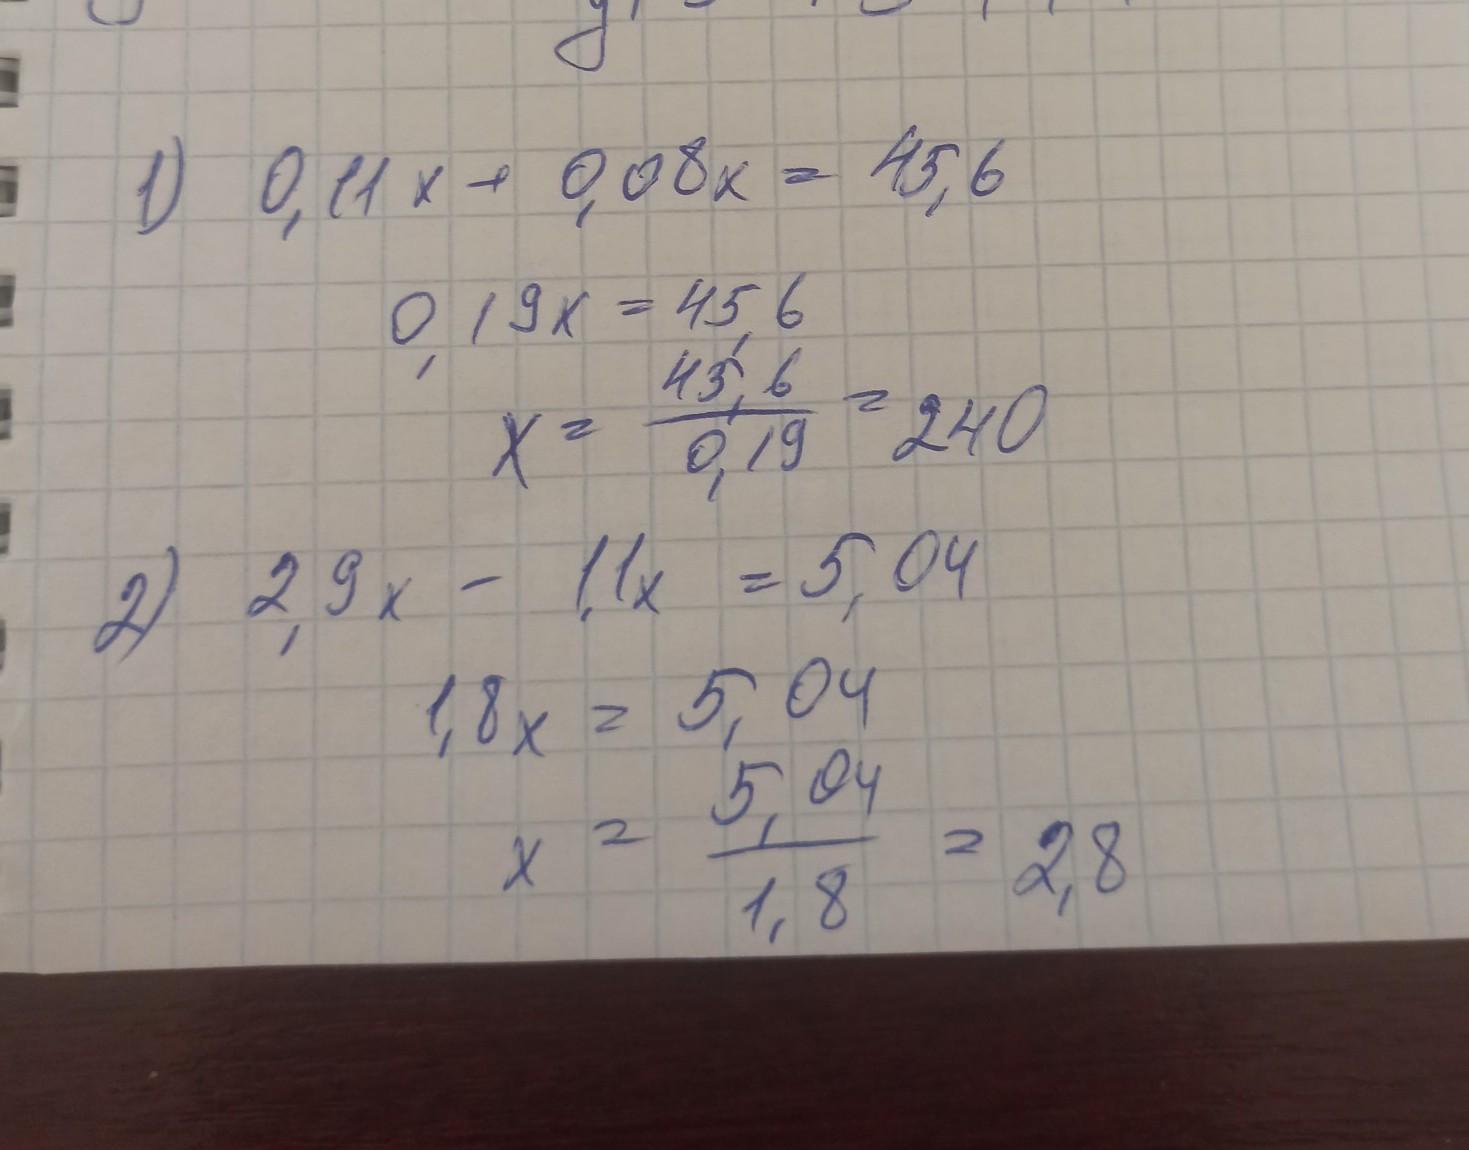 1) 0,11x + 0,08x = 45,6
0,19x = 45,6
x = 45,6/0,19 = 240
2) 2,9x - 1,1x = 5,04
1,8x = 5,04
x = 5,04/1,8 = 2,8